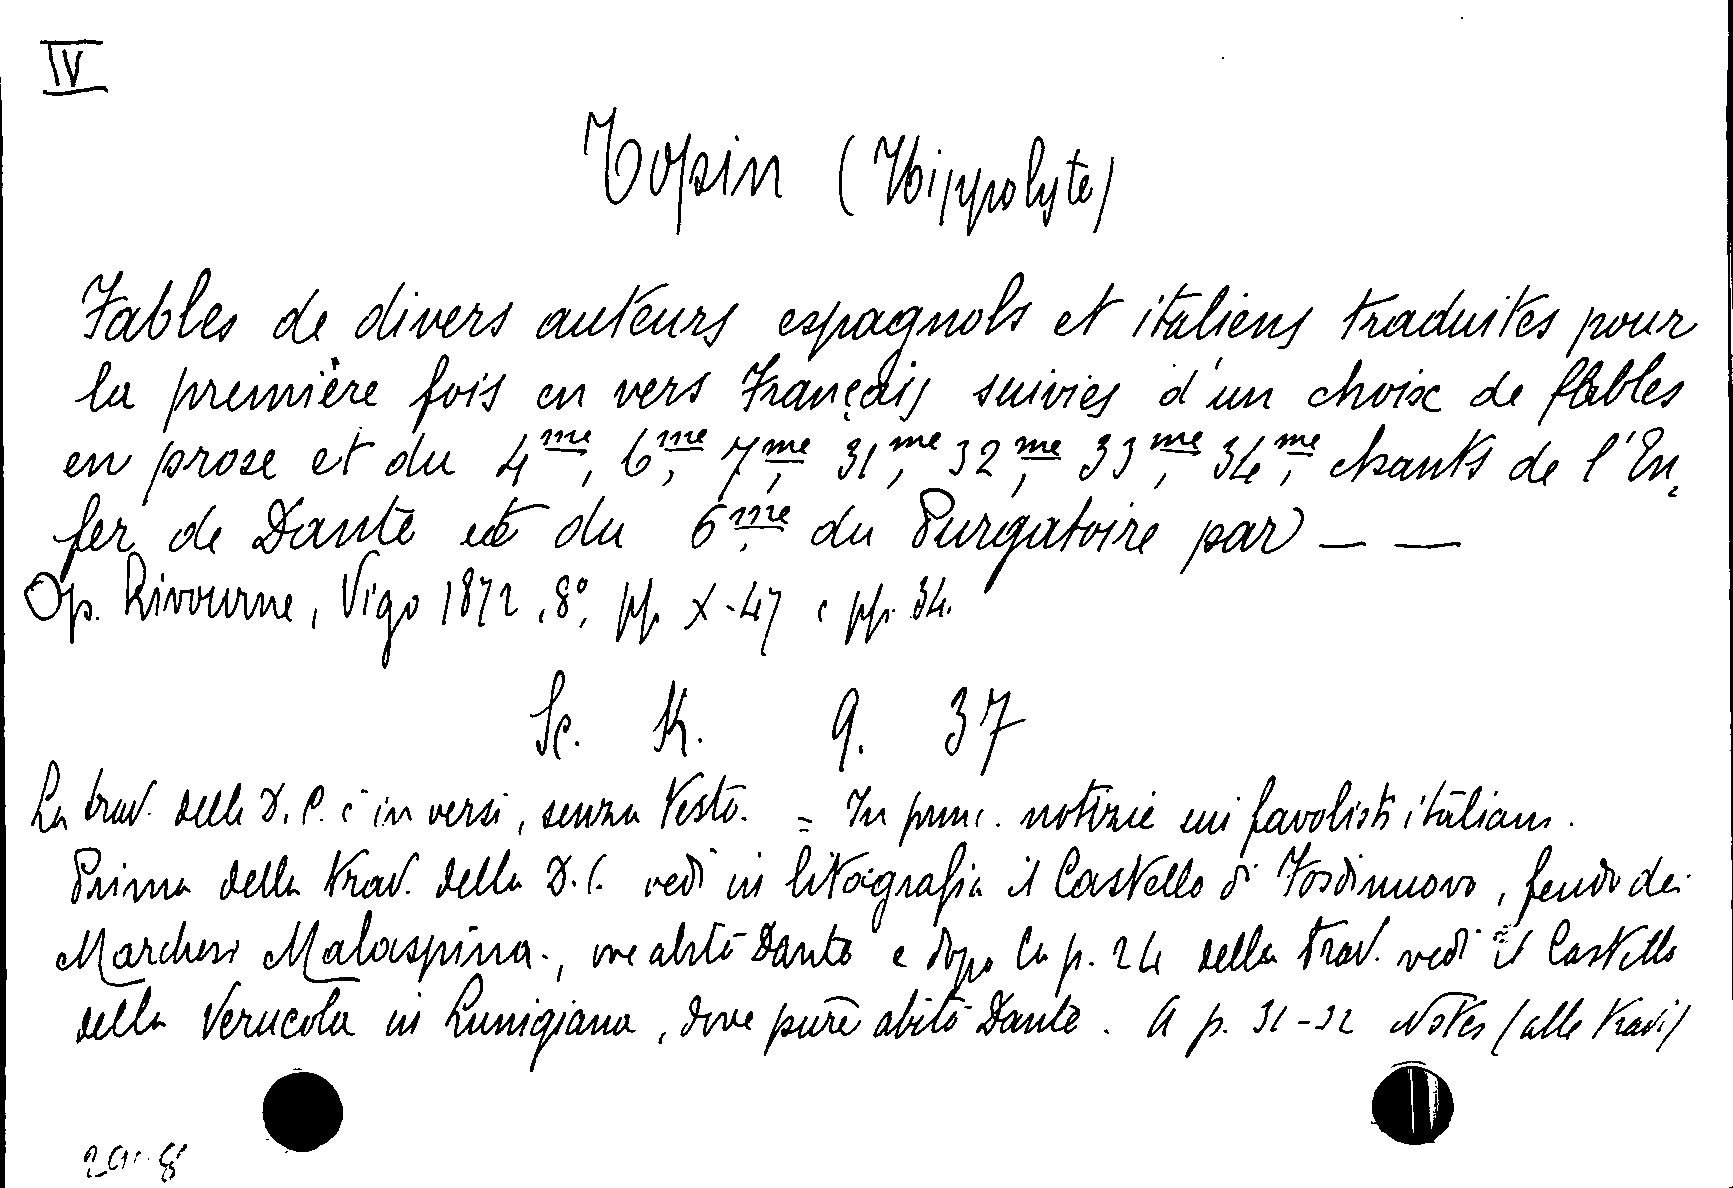 IV
Topin (Hippolyte)
Fables de divers auteurs espagnols et italiens traduites pour
la première fois en vers Français suivies d'un choix de fables
en prose et du 4me, 6me, 7me, 31me, 32me, 33me, 34me, chants de l'En,
fer de Dante et du 6me du Purgatoire par — —
Op. Rivourne, Vigo 1872, 8°, pp. X-47 e pp. 34.
Sc. K. 9. 37
La trad. della D. C. è in versi, senza testo. = In princ. notizie sui favolisti italiani.
Prima della trad. della D. C. vedi in litografia il Castello di Fosdinuovo, feudo dei
Marchesi Malaspina, ove abitò Dante e dopo la p. 24 della trad. vedi il Castello
della Verucola in Lunigiana, dove pure abitò Dante. A p. 31-32 Notes (alle trad.)